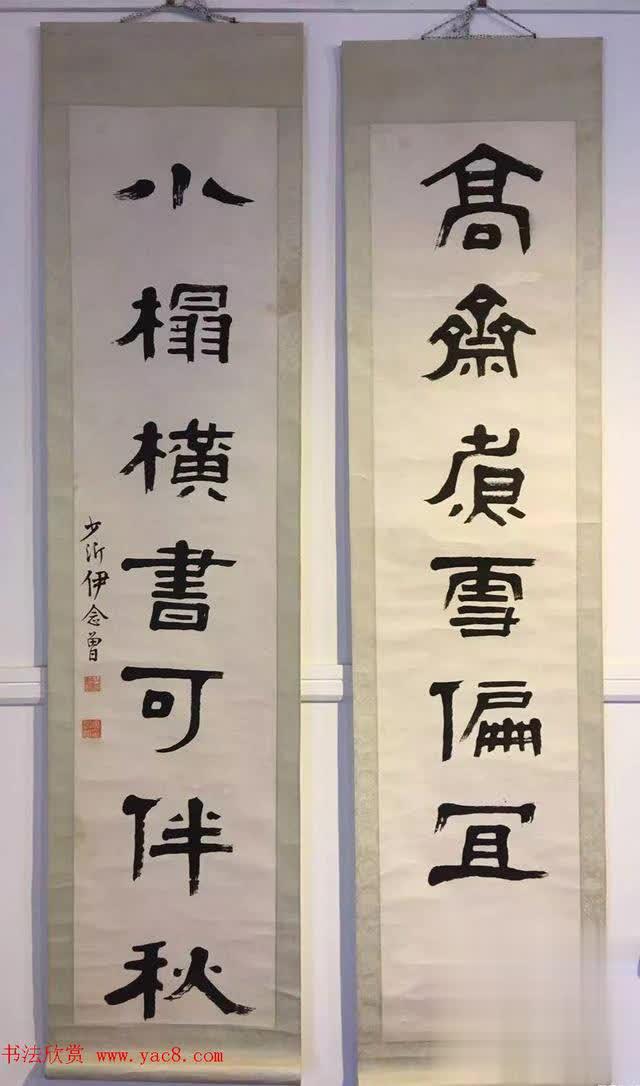 髙齋煮雪偏冝
小榻橫書可伴秋
少沂伊念曾
书法欣赏 www.yac8.com